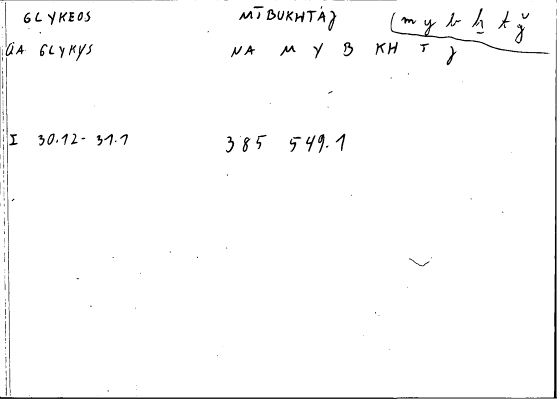 GLYKEOS MĪBUKHTAǧ (m y b ḫ t ǧ
AA GLYKYS NA M Y B KH T J
I 30.12-31.1 385 549.1